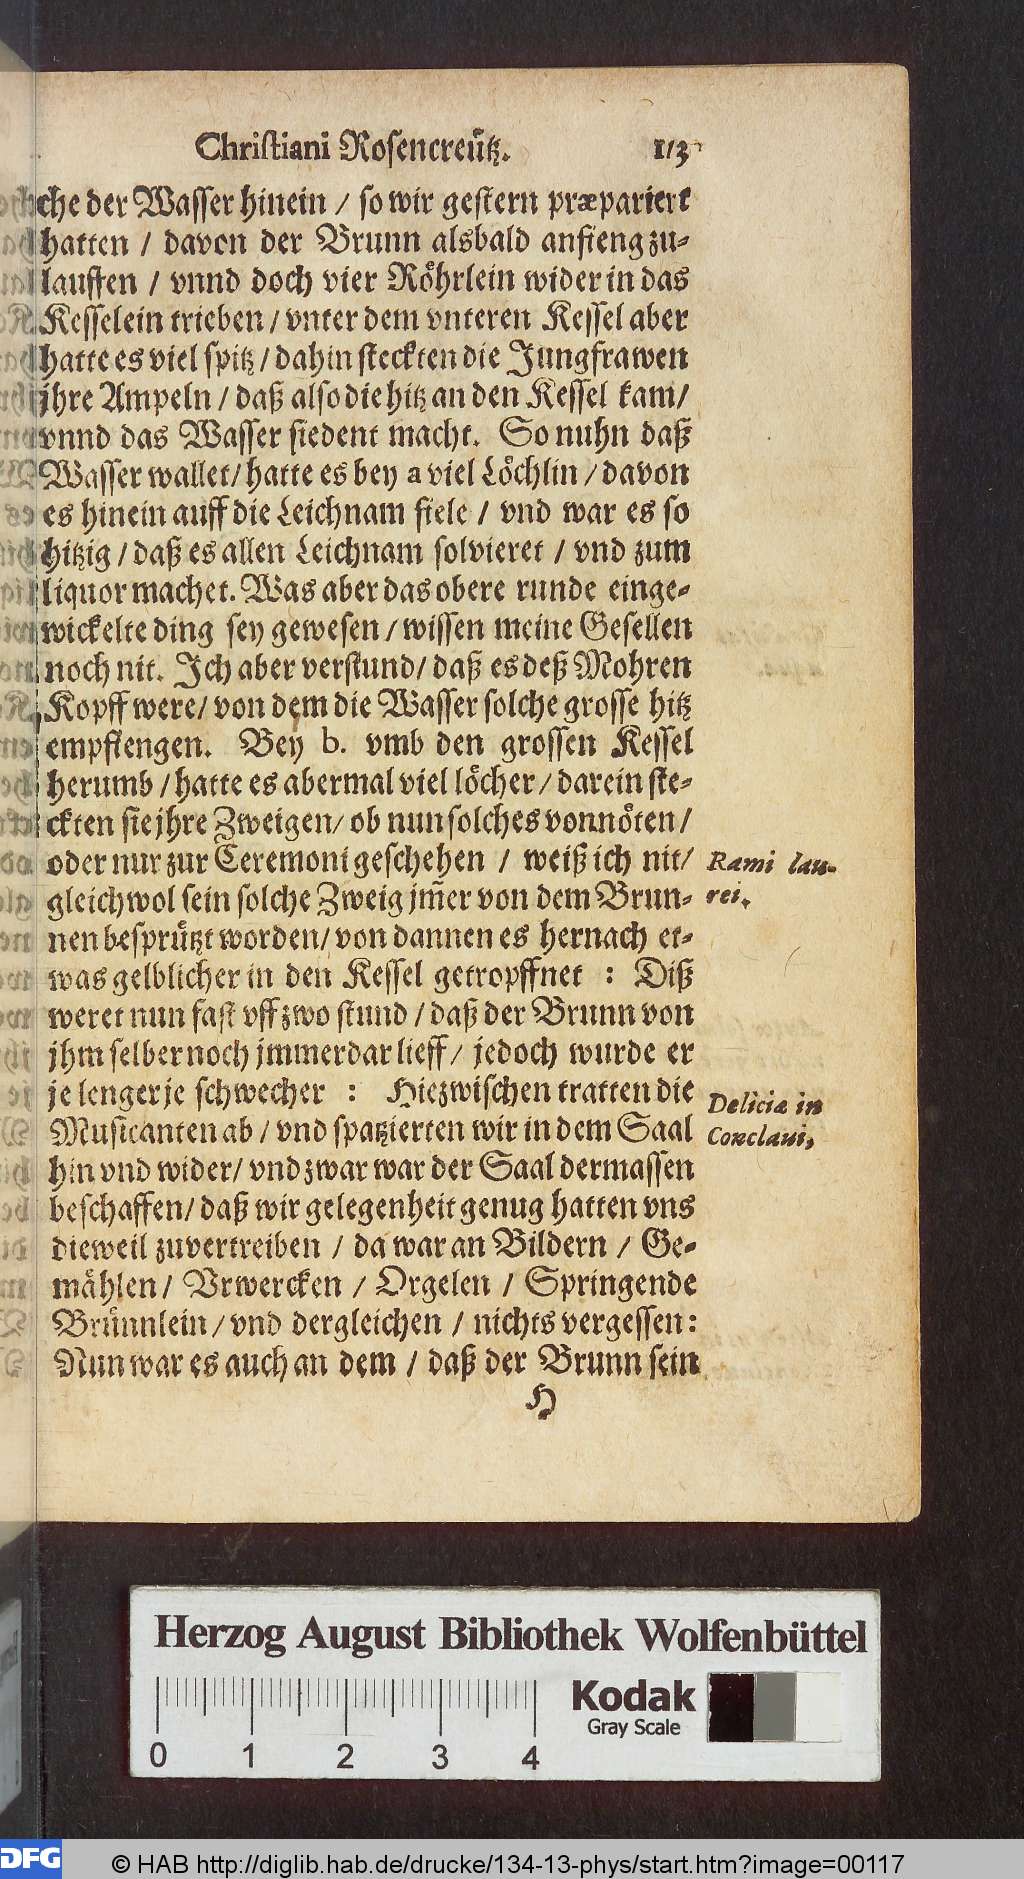 Christiani Rosencreütz. 113
che der Wasser hinein / so wir gestern præpariert
hatten / davon der Brunn alsbald anfieng zu-
lauffen / vnnd doch vier Röhrlein wider in das
Kesselein trieben / vnter dem vnteren Kessel aber
hatte es viel spitz / dahin steckten die Jungfrawen
jhre Ampeln / daß also die hitz an den Kessel kam /
vnnd das Wasser siedent macht. So nuhn daß
Wasser wallet / hatte es bey a viel Löchlin / davon
es hinein auff die Leichnam fiele / vnd war es so
hitzig / daß es allen Leichnam solvieret / vnd zum
liquor machet. Was aber das obere runde einge-
wickelte ding sey gewesen / wissen meine Gesellen
noch nit. Ich aber verstund / daß es deß Mohren
Kopff were / von dem die Wasser solche grosse hitz
empfiengen. Bey b. vmb den grossen Kessel
herumb / hatte es abermal viel löcher / darein ste-
ckten sie jhre Zweigen / ob nun solches vonnöten /
oder nur zur Ceremoni geschehen / weiß ich nit /
Rami lau-
rei.
gleichwol sein solche Zweig jm̃er von dem Brun-
nen besprützt worden / von dannen es hernach et-
was gelblicher in den Kessel getropffnet : Diß
weret nun fast vff zwo stund / daß der Brunn von
jhm selber noch jmmerdar lieff / jedoch wurde er
je lenger je schwecher : Hiezwischen tratten die
Deliciæ in
Conclaui,
Musicanten ab / vnd spatzierten wir in dem Saal
hin vnd wider / vnd zwar war der Saal dermassen
beschaffen / daß wir gelegenheit genug hatten vns
dieweil zuvertreiben / da war an Bildern / Ge-
mählen / Vrwercken / Orgelen / Springende
Brünnlein / vnd dergleichen / nichts vergessen:
Nun war es auch an dem / daß der Brunn sein
H
Herzog August Bibliothek Wolfenbüttel
Kodak
Gray Scale
0 1 2 3 4
DFG
© HAB http://diglib.hab.de/drucke/134-13-phys/start.htm?image=00117